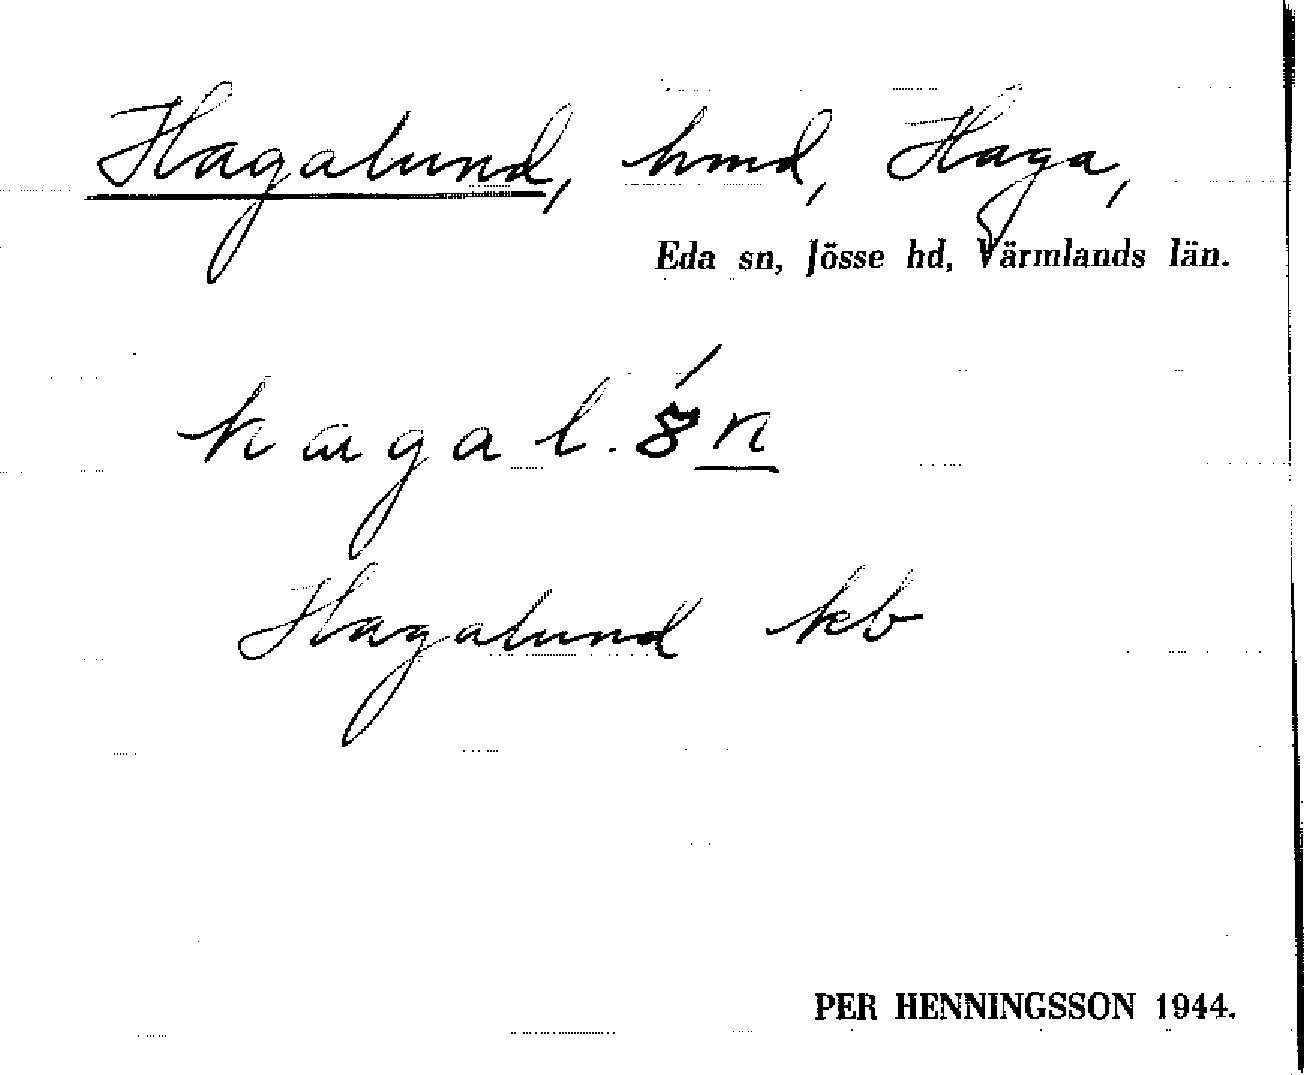 Hagalund, hmd, Haga,
Eda sn, Jösse hd, Värmlands län.
Hagalund kb
PER HENNINGSSON 1944.